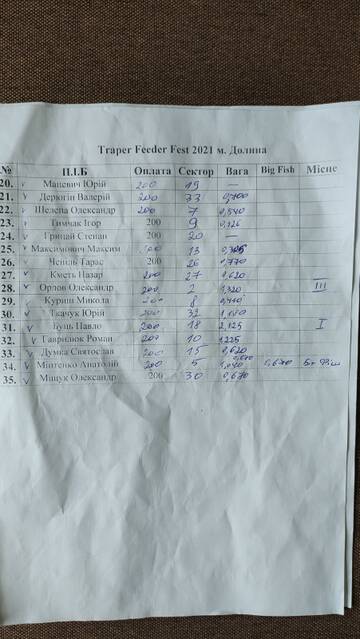 Traper Feeder Fest 2021 м. Долина
№ П.І.Б Оплата Сектор Вага Big Fish Місце
20. v Маневич Юрій 200 19 —
21. v Дерюгін Валерій 200 33 0,700
22. v Шелепа Олександр 200 7 0,840
23. v Тимчак Ігор 200 9
24. v Грицай Степан 200 20 —
25. v Максимович Максим 200 13
26. v Чепіль Тарас 200 26 0,770
27. v Кметь Назар 200 27 0,620
28. v Орлов Олександр 200 2 1,320 III
29. v Куриш Микола 200 8
30. v Ткачук Юрій 200 32
31. v Буць Павло 200 18 2,125 I
32. v Гаврилюк Роман 200 10 1,225
33. v Думка Святослав 200 15 0,620
34. v Мінтенко Анатолій 200 5 0,670
35. v Мицук Олександр 200 30 0,670